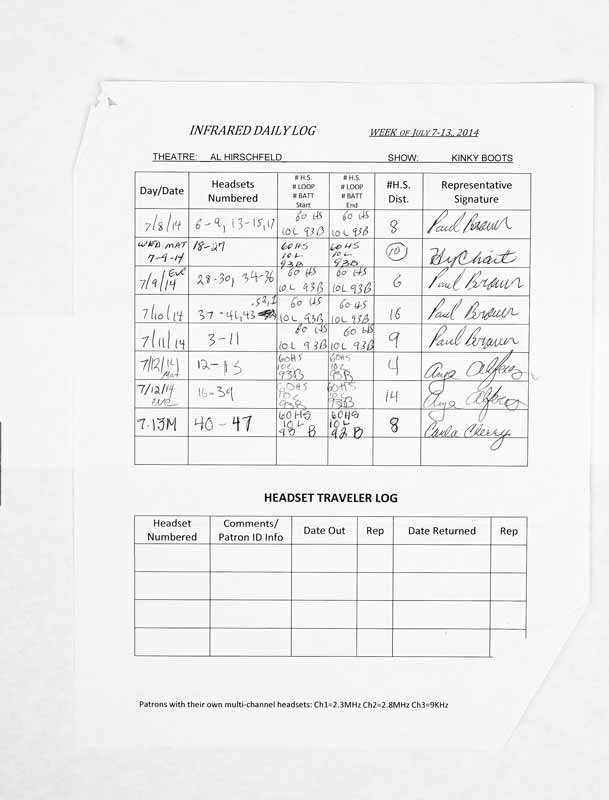 INFRARED DAILY LOG WEEK OF JULY 7-13, 2014
THEATRE: AL HIRSCHFELD SHOW: KINKY BOOTS
Day/Date Headsets Numbered # H.S. # LOOP # BATT Start # H.S. # LOOP # BATT End #H.S. Dist. Representative Signature
7/8/14 6-9, 13-15, 17 60 HS 10L 93B 60 HS 10L 93B 8 Paul Brown
WED MAT 7-9-14 18-27 60HS 10L 93B 60HS 10L 93B 10
7/9/14 EVE 28-30, 34-36 60 HS 10L 93B 60 HS 10L 93B 6 Paul Brown
7/10/14 37-41, 43 60 HS 10L 93B 60 HS 10L 93B 16 Paul Brown
7/11/14 3-11 60 HS 10L 93B 60 HS 10L 93B 9 Paul Brown
7/12/14 Mat 12-15 60HS 10L 93B 60HS 10L 93B 4
7/12/14 eve 16-39 60HS 10L 93B 60HS 10L 93B 14
7-13M 40-47 60HS 10L 93B 60HS 10L 92B 8 Carla Cherry
HEADSET TRAVELER LOG
Headset Numbered Comments/ Patron ID Info Date Out Rep Date Returned Rep
Patrons with their own multi-channel headsets: Ch1=2.3MHz Ch2=2.8MHz Ch3=9KHz